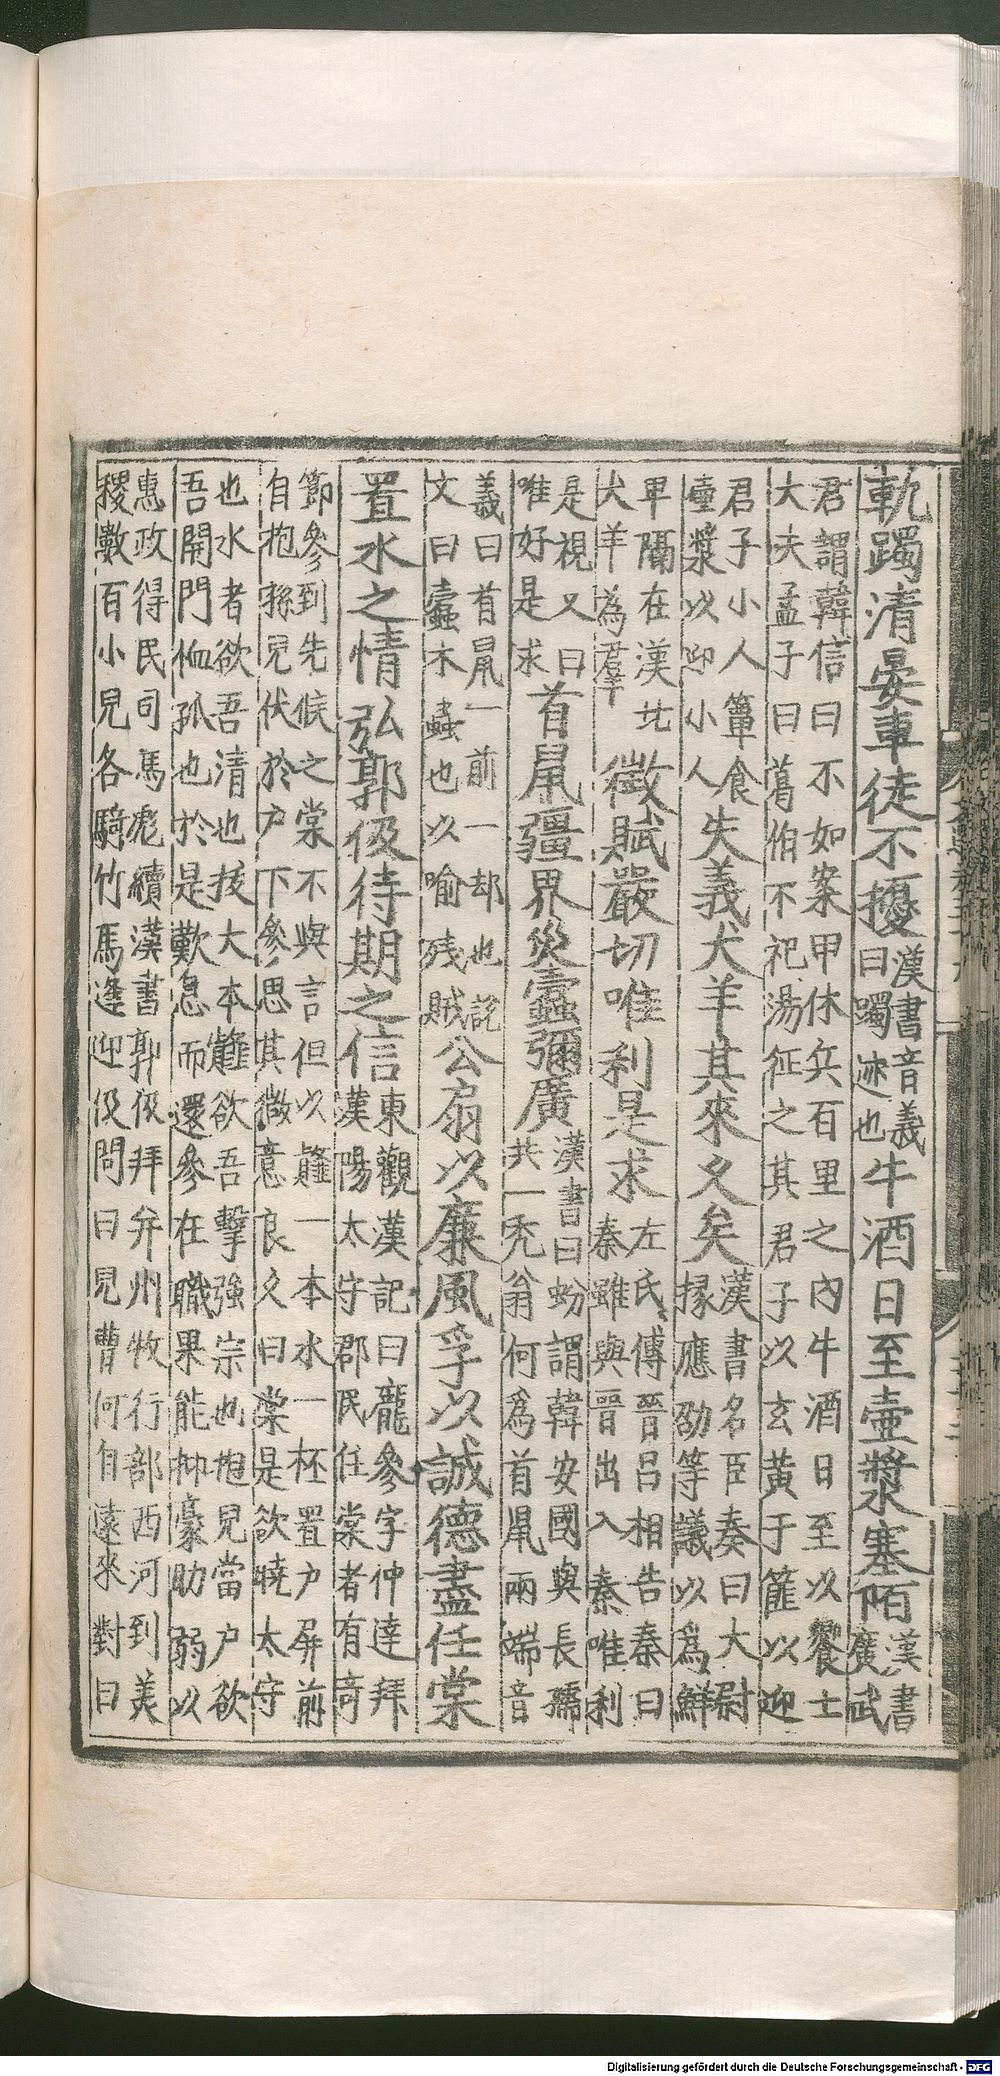 軌躅清晏車徒不擾漢書音義曰躅迹也牛酒日至壷漿塞陌漢書廣武
君謂韓信曰不如案甲休兵百里之內牛酒日至以饗士大夫孟子曰葛伯不祀湯征之其君子以玄黄于篚以迎
君子小人簞食壷漿以迎小人失義犬羊其來久矣漢書名臣奏曰大尉掾應劭等議以爲鮮
卑隔在漢北犬羊為羣徵賦嚴切唯利是求左氏傳晉吕相告秦曰秦雖與晉出入秦唯利
是視又曰唯好是求首鼠疆界災蠹彌廣漢書曰蚡謂韓安國與長孺共一禿翁何爲首鼠兩端音
義曰首鼠一前一却也說文曰蠹木蟲也以喻残賊公扇以廉風孚以誠德盡任棠
置水之情弘郭伋待期之信東觀漢記曰龐參字仲達拜漢陽太守郡民任棠者有奇
節參到先候之棠不與言但以䪥一本水一杯置户屏前自抱孫兒伏於户下參思其微意良久曰棠是欲曉太守
也水者欲吾清也拔大本䪥欲吾擊強宗也抱兒當户欲吾開門恤孤也於是歎息而還參在職果能抑豪助弱以
惠政得民司馬彪續漢書郭伋拜弁州牧行部西河到美稷數百小兒各騎竹馬逢迎伋問曰兒曹何自遠來對曰
Digitalisierung gefördert durch die Deutsche Forschungsgemeinschaft - DFG